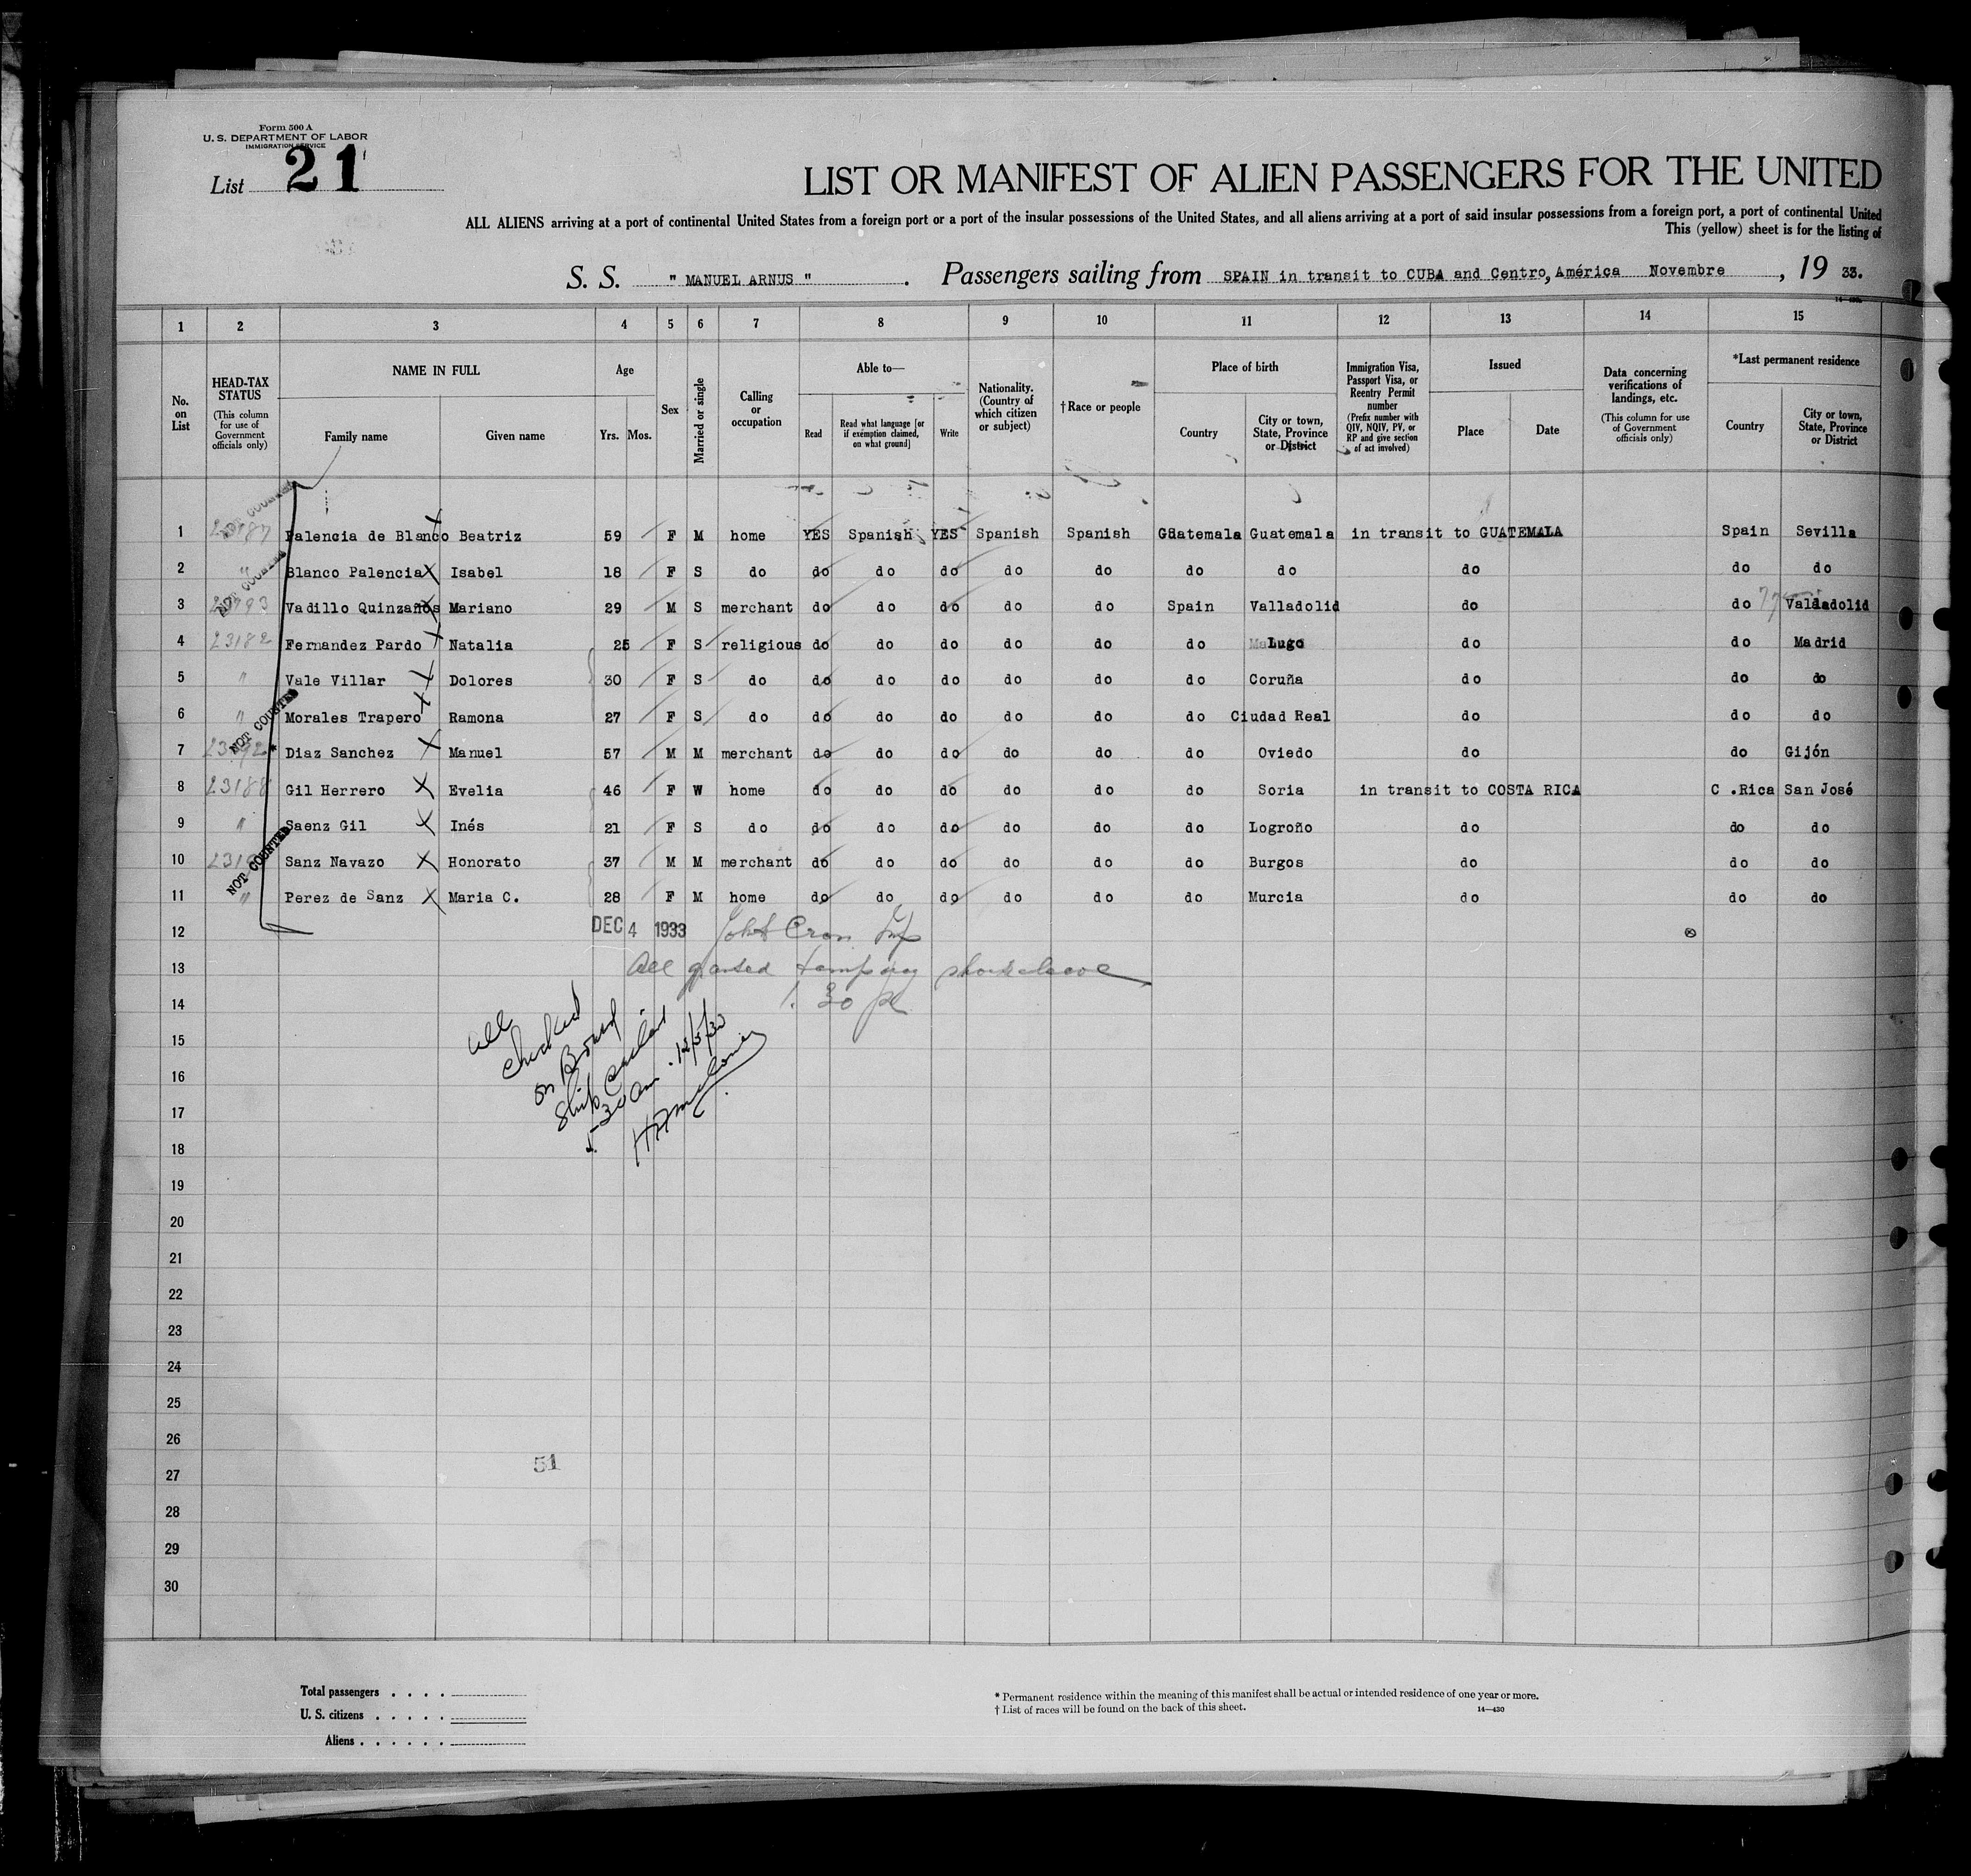 Form 500 A
U. S. DEPARTMENT OF LABOR
IMMIGRATION SERVICE
List 21
LIST OR MANIFEST OF ALIEN PASSENGERS FOR THE UNITED
ALL ALIENS arriving at a port of continental United States from a foreign port or a port of the insular possessions of the United States, and all aliens arriving at a port of said insular possessions from a foreign port, a port of continental United
This (yellow) sheet is for the listing of
S. S. " MANUEL ARNUS " . Passengers sailing from SPAIN in transit to CUBA and Centro, América Novembre , 19 33.
1 2 3 4 5 6 7 8 9 10 11 12 13 14 15
No. on List
HEAD-TAX STATUS (This column for use of Government officials only)
NAME IN FULL Family name Given name
Age Yrs. Mos.
Sex
Married or single
Calling or occupation
Able to— Read Read what language [or if exemption claimed, on what ground] Write
Nationality. (Country of which citizen or subject)
†Race or people
Place of birth Country City or town, State, Province or District
Immigration Visa, Passport Visa, or Reentry Permit number (Prefix number with QIV, NQIV, PV, or RP and give section of act involved)
Issued Place Date
Data concerning verifications of landings, etc. (This column for use of Government officials only)
*Last permanent residence Country City or town, State, Province or District
NOT COUNTED
1 Palencia de Blanco Beatriz 59 F M home YES Spanish YES Spanish Spanish Guatemala Guatemala in transit to GUATEMALA Spain Sevilla
2 " Blanco Palencia X Isabel 18 F S do do do do do do do do do do do
NOT COUNTED
3 Vadillo Quinzaños Mariano 29 M S merchant do do do do do Spain Valladolid do do Valladolid
4 23182 Fernandez Pardo X Natalia 25 F S religious do do do do do do Lugo do do Madrid
5 " Vale Villar X Dolores 30 F S do do do do do do do Coruña do do do
6 " Morales Trapero X Ramona 27 F S do do do do do do do Ciudad Real do do do
NOT COUNTED
7 * Diaz Sanchez X Manuel 57 M M merchant do do do do do do Oviedo do do Gijón
8 23188 Gil Herrero X Evelia 46 F W home do do do do do do Soria in transit to COSTA RICA C .Rica San José
9 " Saenz Gil X Inés 21 F S do do do do do do do Logroño do do do
10 Sanz Navazo X Honorato 37 M M merchant do do do do do do Burgos do do do
NOT COUNTED
11 " Perez de Sanz X Maria C. 28 F M home do do do do do do Murcia do do do
12 DEC 4 1933
13 All granted temporary shore leave
14 1.30 
15 all
checked
16 on Board
ship sailed
17 5 30 am. 12/5/33
18
19
20
21
22
23
24
25
26
51
27
28
29
30
Total passengers . . . .
U. S. citizens . . . . .
Aliens . . . . . .
* Permanent residence within the meaning of this manifest shall be actual or intended residence of one year or more.
† List of races will be found on the back of this sheet. 14—430